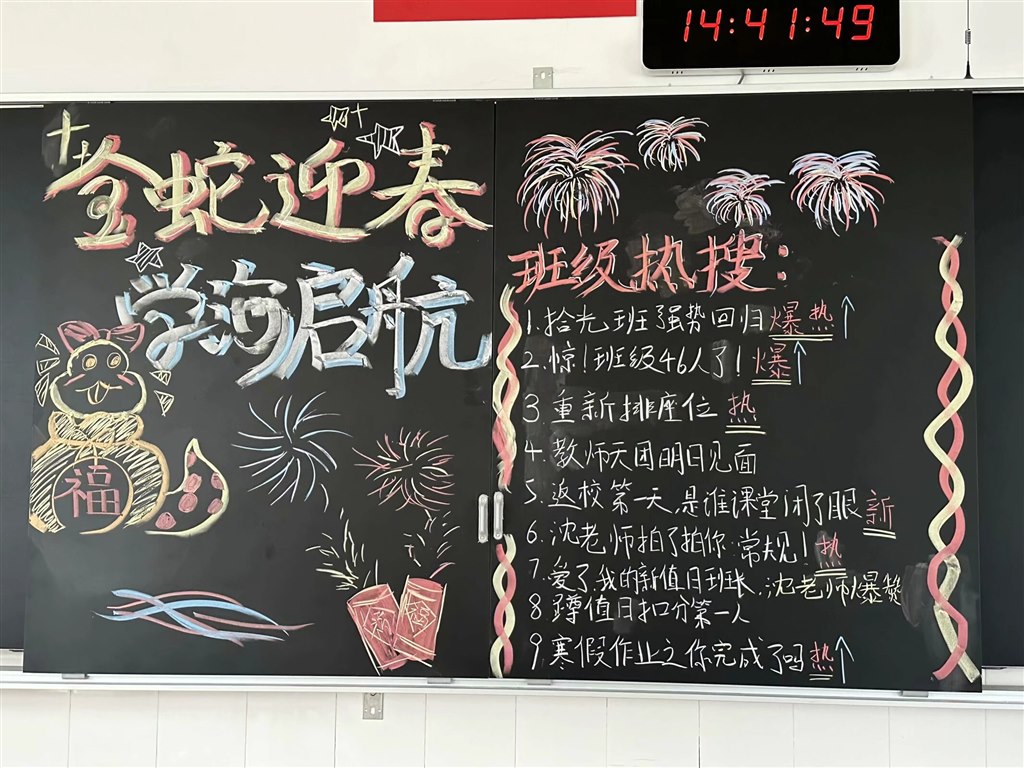 14:41:49
金蛇迎春
学海启航
福
新
班级热搜:
1.拾光班强势回归爆热↑
2.惊!班级46人了!爆↑
3 重新排座位 热
4.教师天团明日见面
5.返校第一天,是谁课堂闭了眼新
6.沈老师拍了拍你:常规!热
7.爱了,我的新值日班长,沈老师爆赞
8.蹲值日扣分第一人
9.寒假作业之你完成了吗热↑